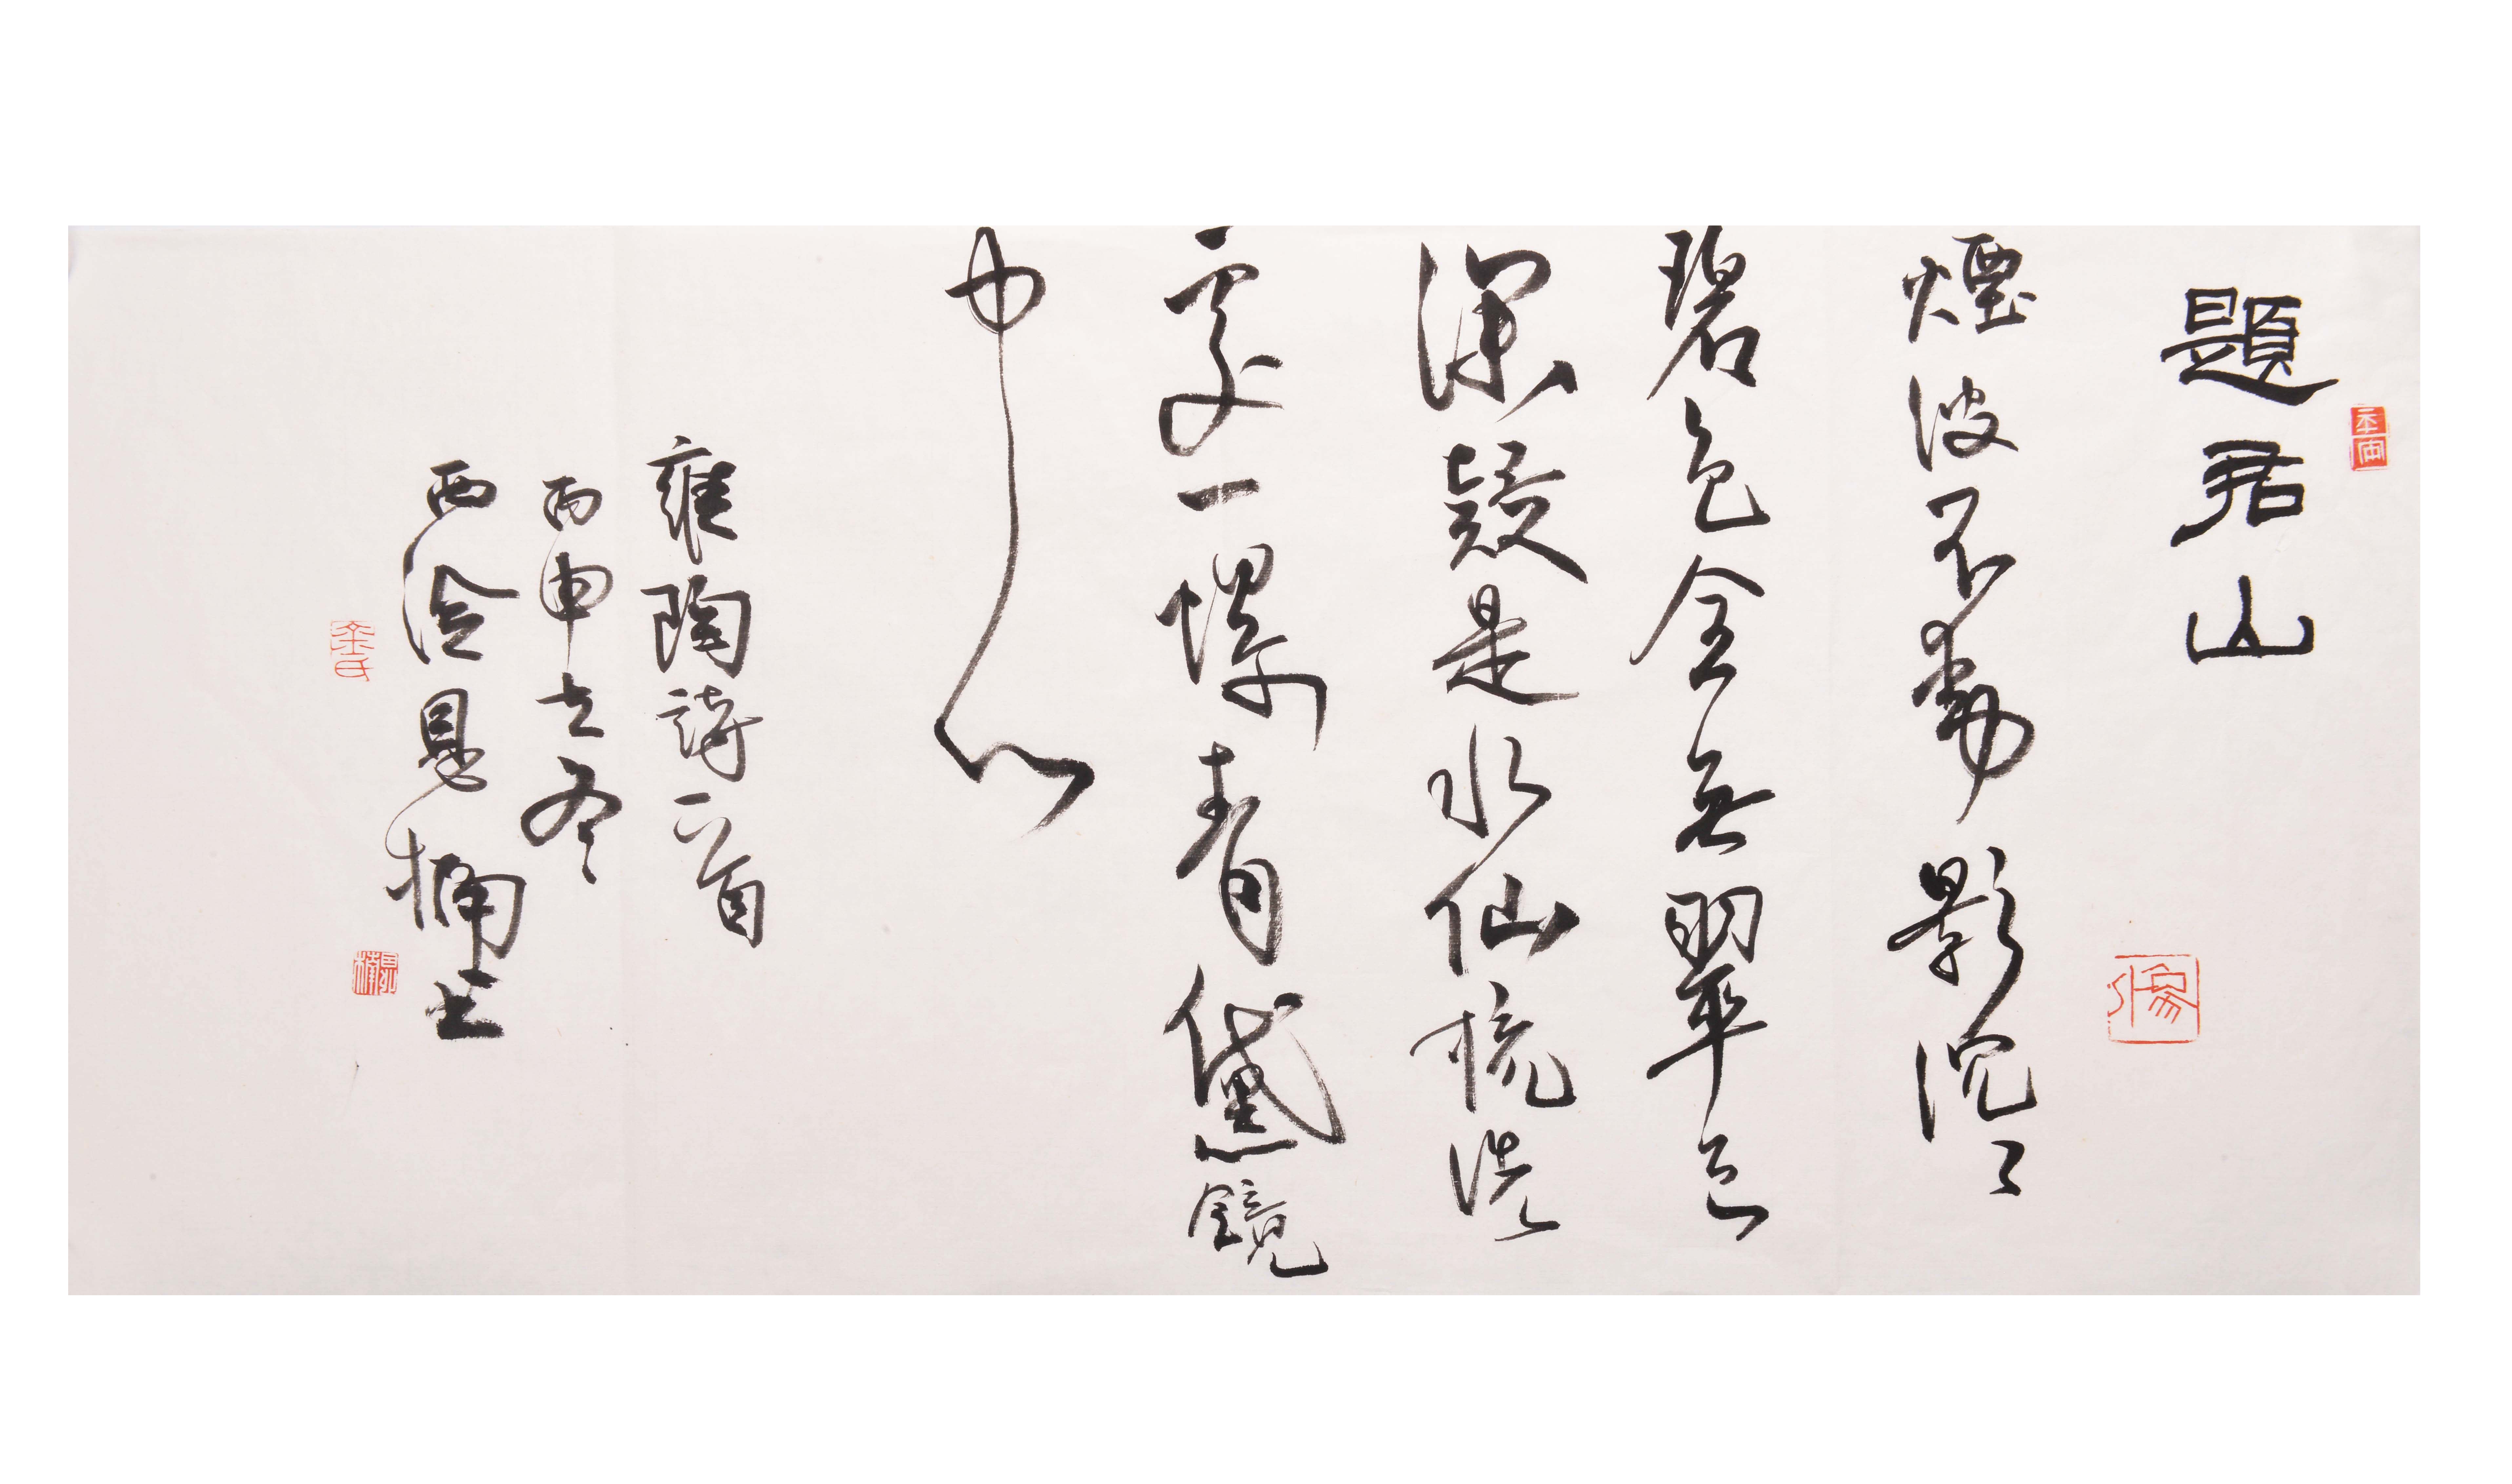 題君山
煙波不動影沉々
碧色全無翠色
深疑是水仙梳洗
處一螺青黛鏡
中心
雍陶詩一首
丙申立冬
西泠晁楠書